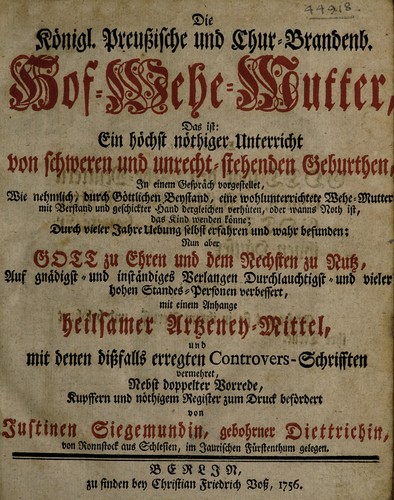 44918.
Die
Königl. Preußische und Chur-Brandenb.
Hof-Wehe-Mutter,
Das ist:
Ein höchst nöthiger Unterricht
von schweren und unrecht-stehenden Geburthen,
In einem Gespräch vorgestellet,
Wie nehmlich, durch Göttlichen Beystand, eine wohlunterrichtete Wehe-Mutter
mit Verstand und geschickter Hand dergleichen verhüten, oder wanns Noth ist,
das Kind wenden könne;
Durch vieler Jahre Uebung selbst erfahren und wahr befunden:
Nun aber
GOTT zu Ehren und dem Nechsten zu Nutz,
Auf gnädigst- und inständiges Verlangen Durchlauchtigst- und vieler
hohen Standes-Personen verbessert,
mit einem Anhange
heilsamer Artzeney-Mittel,
und
mit denen dißfalls erregten Controvers-Schrifften
vermehret,
Nebst doppelter Vorrede,
Kupffern und nöthigem Register zum Druck befördert
von
Justinen Siegemundin, gebohrner Diettrichin,
von Ronnstock aus Schlesien, im Jaurischen Fürstenthum gelegen.
BERLIN,
zu finden bey Christian Friedrich Voß, 1756.